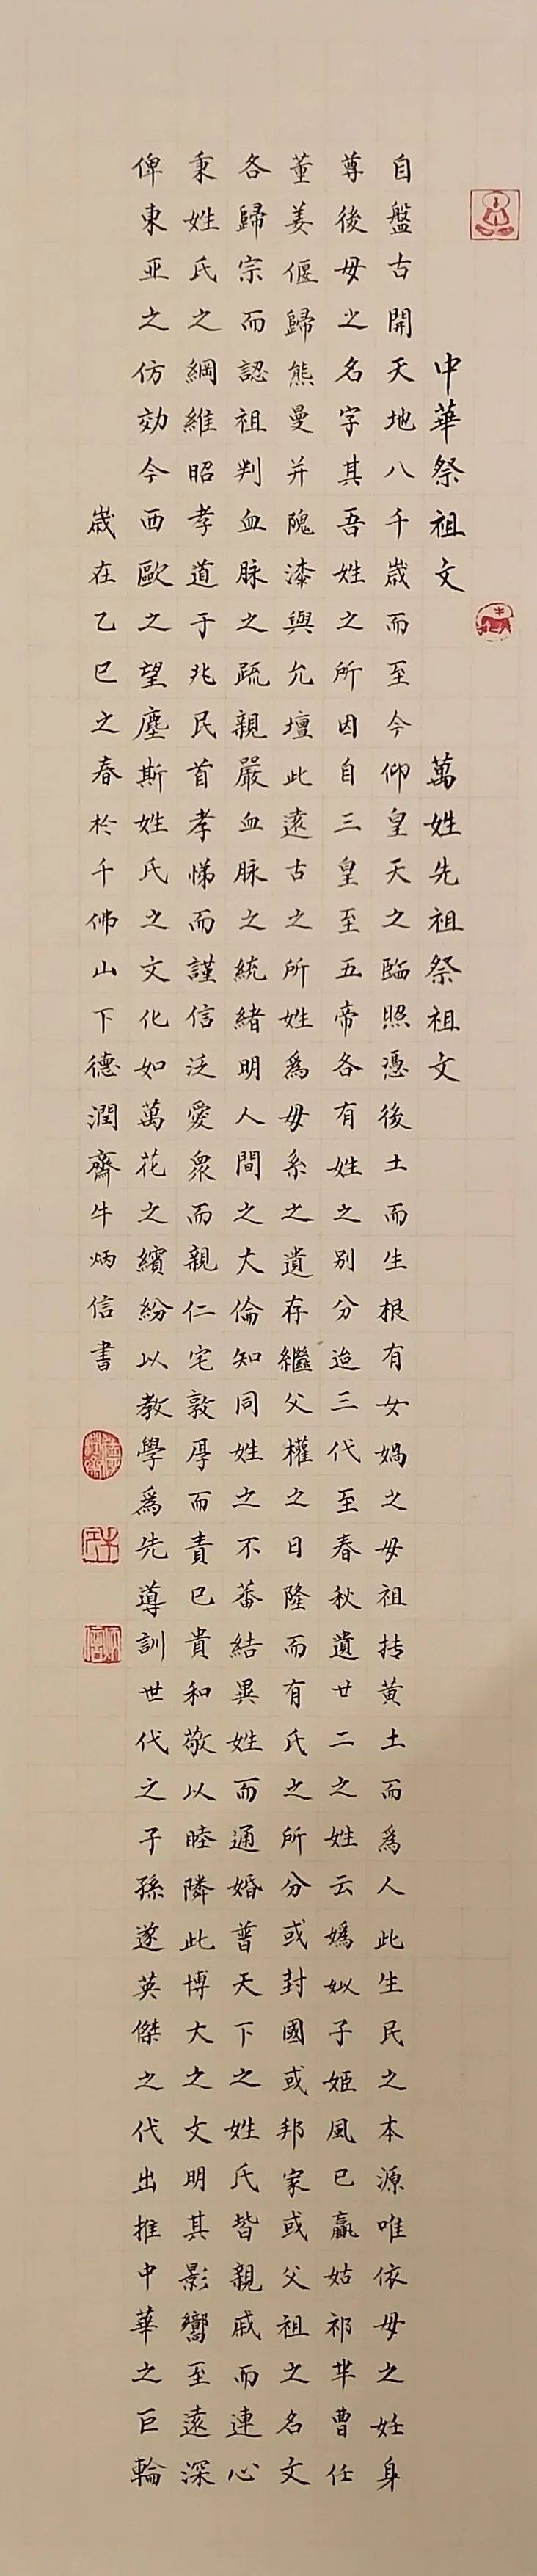 中華祭祖文　萬姓先祖祭祖文
自盤古開天地八千歲而至今仰皇天之臨照憑後土而生根有女媧之母祖抟黃土而為人此生民之本源唯依母之妊身
尊後母之名字其吾姓之所因自三皇至五帝各有姓之別分迨三代至春秋遺廿二之姓云媯姒子姬風已嬴姑祁芈曹任
董姜偃歸熊曼并隗漆與允壇此遠古之所姓為母系之遺存繼父權之日隆而有氏之所分或封國或邦家或父祖之名文
各歸宗而認祖判血脉之疏親嚴血脉之統緒明人間之大倫知同姓之不蕃結異姓而通婚普天下之姓氏皆親戚而連心
秉姓氏之綱維昭孝道于兆民首孝悌而謹信泛愛衆而親仁宅敦厚而責已貴和敬以睦隣此博大之文明其影嚮至遠深
俾東亚之仿効今西歐之望塵斯姓氏之文化如萬花之繽紛以教學為先導訓世代之子孫遂英傑之代出推中華之巨輪
歲在乙巳之春於千佛山下德潤齋牛炳信書